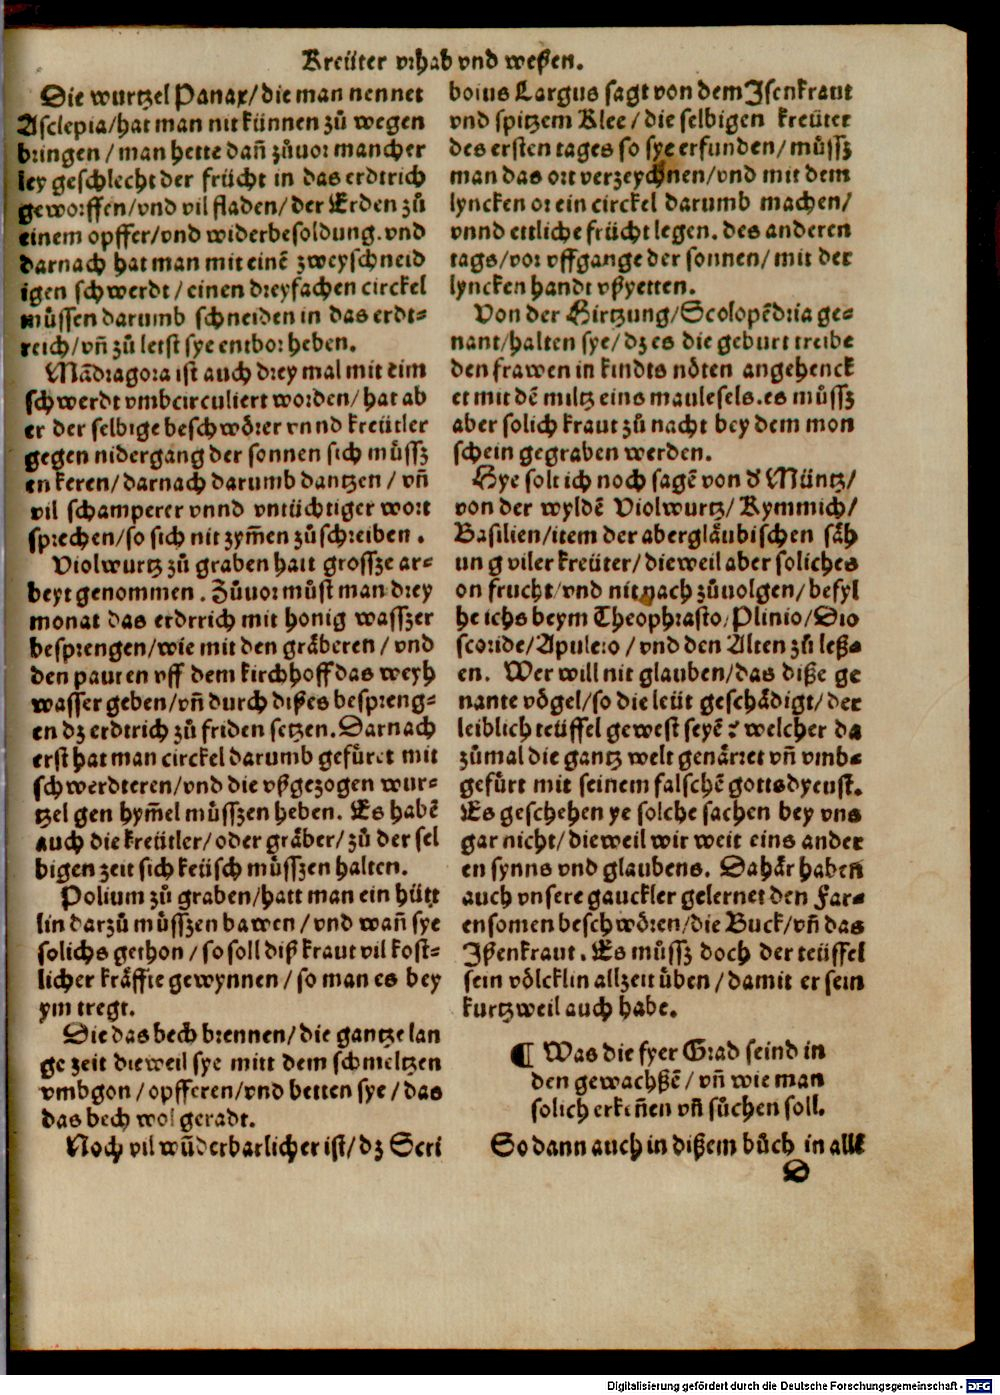 Kreüter vrhab vnd weßen.
Die wurtzel Panax/die man nennet
Asclepia/hat man nit künnen zů wegen
bringen / man hette dañ zůuor mancher
ley geschlecht der frücht in das erdtrich
geworffen/vnd vil fladen/der Erden zů
einem opffer/vnd widerbesoldung.vnd
darnach hat man mit einē zweyschneid
igen schwerdt / einen dreyfachen circkel
müssen darumb schneiden in das erdt⸗
reich/vñ zů letst sye entbor heben.
Mādragora ist auch drey mal mit eim
schwerdt vmbcirculiert worden/hat ab
er der selbige beschwörer vnnd kreütler
gegen nidergang der sonnen sich müssz
en keren/darnach darumb dantzen / vñ
vil schamperer vnnd vntüchtiger wort
sprechen/so sich nit zym̄en zůschreiben .
Violwurtz zů graben hatt grossze ar⸗
beyt genommen . Zůuor můst man drey
monat das erdtrich mit honig wasszer
besprengen/wie mit den gräberen / vnd
den pauren vff dem kirchhoff das weyh
wasser geben/vñ durch dißes bespreng⸗
en dz erdtrich zů friden setzen.Darnach
erst hat man circkel darumb gefüret mit
schwerdteren/vnd die vßgezogen wur⸗
tzel gen hym̄el müsszen heben. Es habē
auch die kreütler/oder gräber/zů der sel
bigen zeit sich keüsch müsszen halten.
Polium zů graben/hatt man ein hütt
lin darzů müsszen bawen / vnd wañ sye
solichs gethon / so soll diß kraut vil kost⸗
licher kräffte gewynnen / so man es bey
ym tregt.
Die das bech brennen/die gantze lan
ge zeit dieweil sye mitt dem schmeltzen
vmbgon / opfferen/vnd betten sye / das
das bech wol geradt.
Noch vil wūderbarlicher ist/dz Scri
bonus Largus sagt von dem Isenkraut
vnd spitzem Klee / die selbigen kreüter
des ersten tages so sye erfunden/müssz
man das ort verzeychnen/vnd mit dem
lyncken or ein circkel darumb machen/
vnnd ettliche frücht legen. des anderen
tags/vor vffgange der sonnen/mit der
lyncken handt vßyetten.
Von der Hirtzung/Scolopēdria ge⸗
nant/halten sye/dz es die geburt treibe
den frawen in kindts nöten angehenck
et mit dē miltz eins maulesels.es müssz
aber solich kraut zů nacht bey dem mon
schein gegraben werden.
Hye solt ich noch sagē von d' Müntz/
von der wyldē Violwurtz/Kymmich/
Basilien/item der abergläubischen säh
ung viler kreüter/dieweil aber soliches
on frucht/vnd nit nach zůuolgen/befyl
he ichs beym Theophrasto/Plinio/Dio
scoride/Apuleio / vnd den Alten zů leß⸗
en. Wer will nit glauben/das diße ge
nante vögel/so die leüt geschädigt/der
leiblich teüffel gewest seyē? welcher da
zůmal die gantz welt genärret vñ vmb⸗
gefürt mit seinem falschē gottsdyenst.
Es geschehen ye solche sachen bey vns
gar nicht/dieweil wir weit eins ander
en synns vnd glaubens. Dahär haben
auch vnsere gauckler gelernet den Far⸗
ensomen beschwören/die Buck/vñ das
Ißenkraut. Es müssz doch der teüffel
sein völcklin allzeit üben / damit er sein
kurtzweil auch habe.
¶ Was die fyer Grad seind in
den gewachßē / vñ wie man
solich erkeñen vñ sůchen soll.
So dann auch in dißem bůch in alle
D
Digitalisierung gefördert durch die Deutsche Forschungsgemeinschaft - DFG